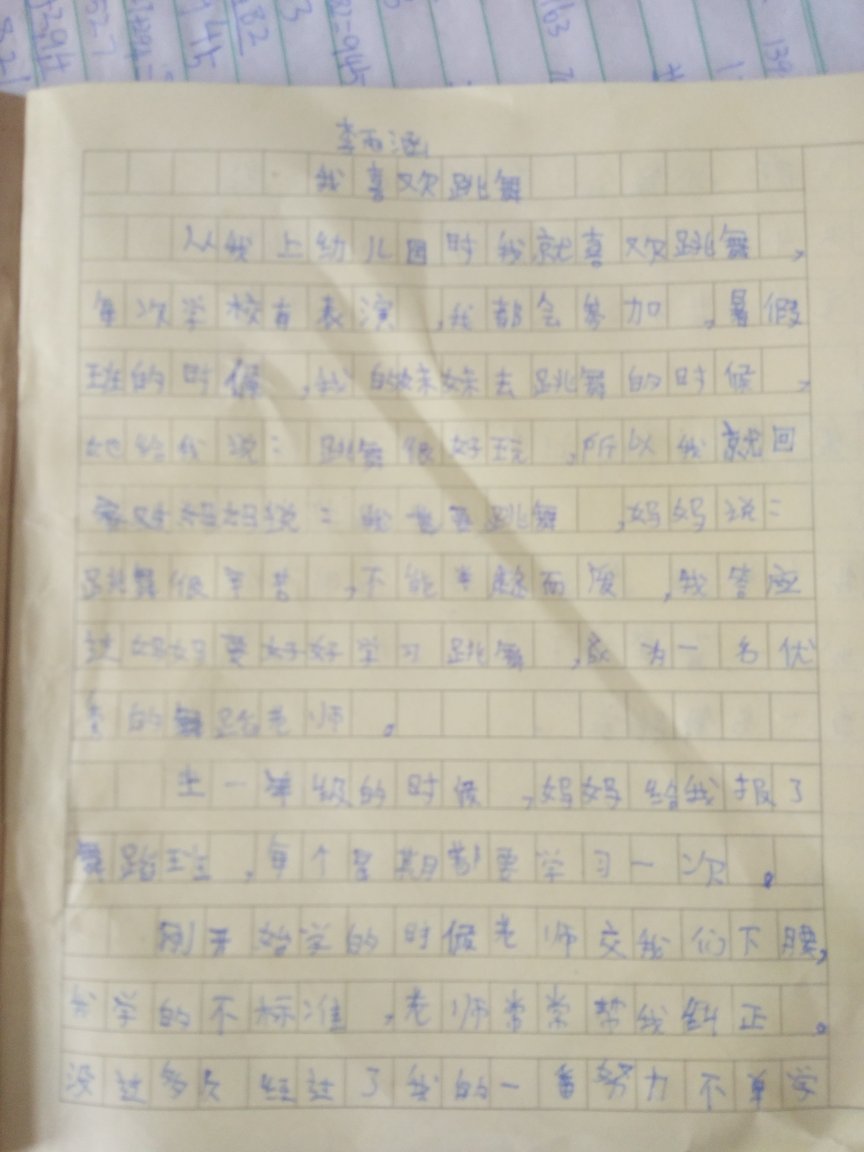 李雨涵
我喜欢跳舞
从我上幼儿园时我就喜欢跳舞,
每次学校有表演,我都会参加,暑假
班的时候,我的妹妹去跳舞的时候,
她给我说:跳舞很好玩,所以我就回
家对妈妈说:我也要跳舞,妈妈说:
跳舞很辛苦,不能半途而废,我答应
过妈妈要好好学习跳舞,成为一名优
秀的舞蹈老师。
上一年级的时候,妈妈给我报了
舞蹈班,每个星期都要学习一次。
刚开始学的时候老师交我们下腰,
我学的不标准,老师常常帮我纠正。
没过多久 经过了我的一番努力不单学